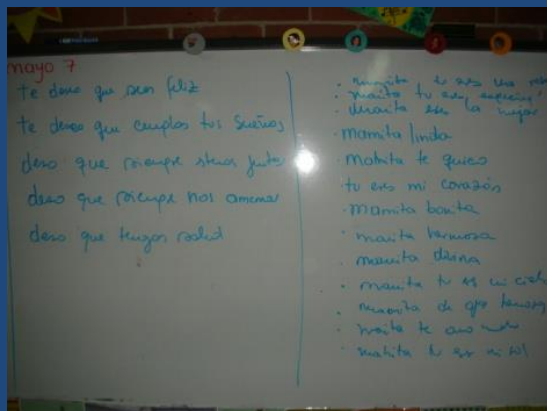 mayo 7
te deseo que seas feliz
te deseo que cumplas tus sueños
deseo que siempre juntos
deseo que siempre nos amemos
deseo que tengas salud
· tu eres una
· tu eres especial
· eres la mejor
· mamita linda
· mamita te quiero
· tu eres mi corazón
· mamita bonita
· mamita hermosa
· mamita divina
· mamita tu es mi cielo
· mamita de ojos
· te amo
· mamita tu es mi sol